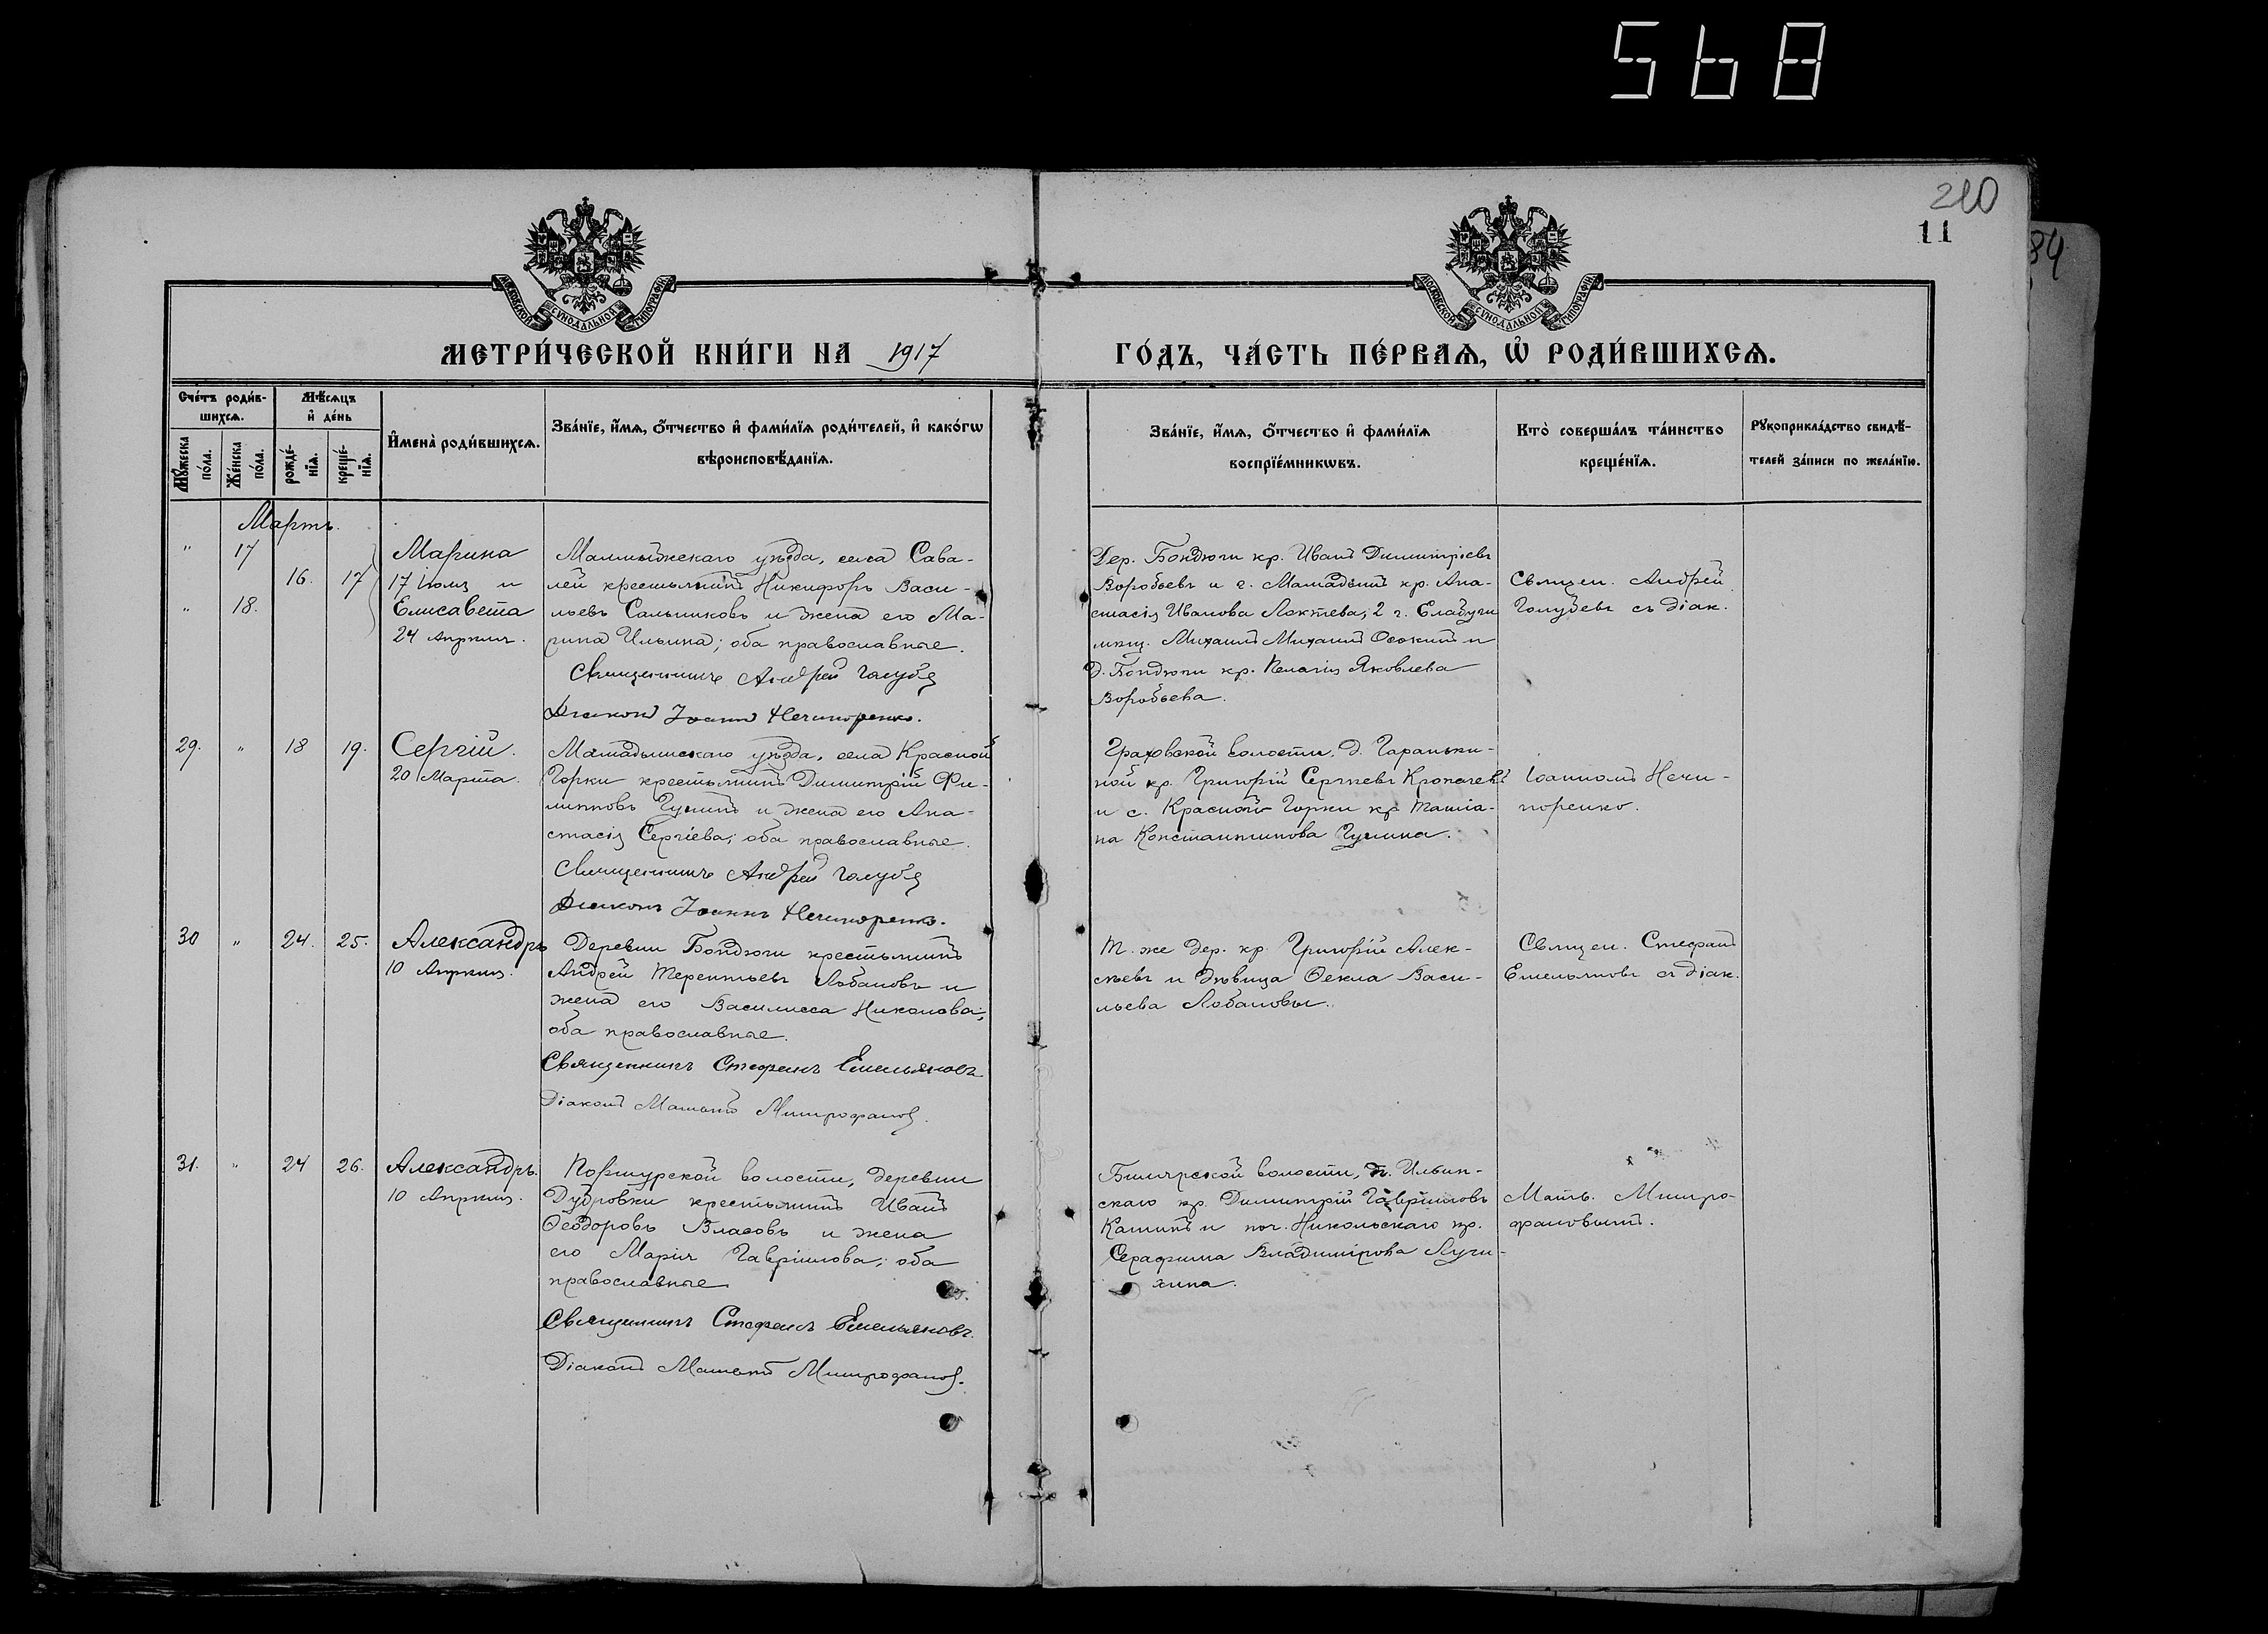 568
210
11
34
МОСКОВСКОЙ СѴНОДАЛЬНОЙ ТИПОГРАФІИ
МОСКОВСКОЙ СѴНОДАЛЬНОЙ ТИПОГРАФІИ
МЕТРИ́ЧЕСКОЙ КНИ́ГИ НА 1917
ГО́ДЪ, ЧА́СТЬ ПЕ́РВАѦ, Ѡ҆ РОДИ́ВШИХСѦ.
Сче́тъ роди́в-
шихсѧ.
Мѣ́сѧцъ
и҆ де́нь
Мꙋ́жеска
по́ла.
Же́нска
по́ла.
рожде́-
нїѧ.
креще́-
нїѧ.
И҆мена̀ роди́вшихсѧ.
Зва́нїе, и҆́мѧ, ѻ҆́тчество и҆ фами́лїѧ роди́телей, и҆ како́гѡ
вѣроисповѣ́данїѧ.
Зва́нїе, и҆́мѧ, ѻ҆́тчество и҆ фами́лїѧ
воспрїе́мникѡвъ.
Кто̀ соверша́лъ та́инство
креще́нїѧ.
Рꙋкоприкла́дство свидѣ́-
телей за́писи по жела́нїю.
Мартъ.
" 17
16. 17
" 18.
Марина
17 Іюля и
Елисавета
24 Апрѣля.
Малмыжскаго уѣзда, села Сава-
лей крестьянинъ Никифоръ Васи-
льевъ Сальниковъ и жена его Ма-
рина Ильина; оба православные.
Священникъ Андрей Голубе
Діаконъ Іоаннъ Нечипоренко.
Дер. Бондюги кр. Иванъ Димитріевъ
Воробьевъ и г. Мамадышъ кр. Ана-
стасія Иванова Локтева; 2 г. Елабуги
мѣщ. Михаилъ Михаил Осокинъ и
д. Бондюги кр. Пелагія Яковлева
Воробьева.
Священ. Андрей
Голубевъ съ діак.
29. " 18 19.
Сергій.
20 Марта.
Мамадышскаго уѣзда, села Красной
Горки крестьянинъ Димитрій Фи-
липповъ Гущинъ и жена его Ана-
стасія Сергіева; оба православные.
Священникъ Андрей Голубе
Діаконъ Іоаннъ Нечипоренко.
Граховской волости, д. Гараньки-
ной кр. Григорій Сергѣевъ Кропачевъ
и с. Красной Горки кр. Татіа-
на Константинова Гущина.
Іоанномъ Нечи-
поренко.
30 " 24. 25.
Александръ
10 Апрѣля.
Деревни Бондюги крестьянинъ
Андрей Терентьевъ Лобановъ и
жена его Василисса Никонова;
оба православные.
Священникъ Стефанъ Емельяновъ
Діаконъ Матвѣй Митрофанов
Т. же дер. кр. Григорій Алек-
сѣевъ и дѣвица Ѳекла Васи-
льева Лобановы.
Священ. Стефанъ
Емельяновъ съ діак.
31. " 24 26.
Александръ.
10 Апрѣля.
Поршурской волости, деревни
Дубровки крестьянинъ Иванъ
Ѳеодоровъ Власовъ и жена
его Марія Гавріилова; оба
православные
Священникъ Стефанъ Емельяновъ.
Діаконъ Матвѣй Митрофанов.
Билярской волости, п. Ильин-
скаго кр. Димитрій Гавріиловъ
Калинъ и поч. Никольскаго кр.
Серафима Владимірова Лучи-
хина.
Матѳ. Митро-
фановымъ.